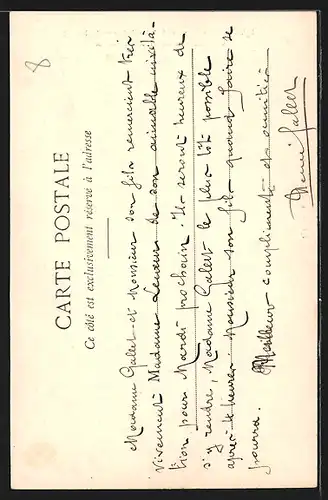 8
CARTE POSTALE
Ce côté est exclusivement réservé à l'adresse
Madame Galect et Monsieur son fils remercient très
vivement Madame de son aimable invita-
tion pour Mardi prochain Ils seront heureux de
s'y rendre, Madame Galect le plus tôt possible
après 4 heures Monsieur son fils quand faire se
pourra. Meilleurs compliments et amitiés
Galect